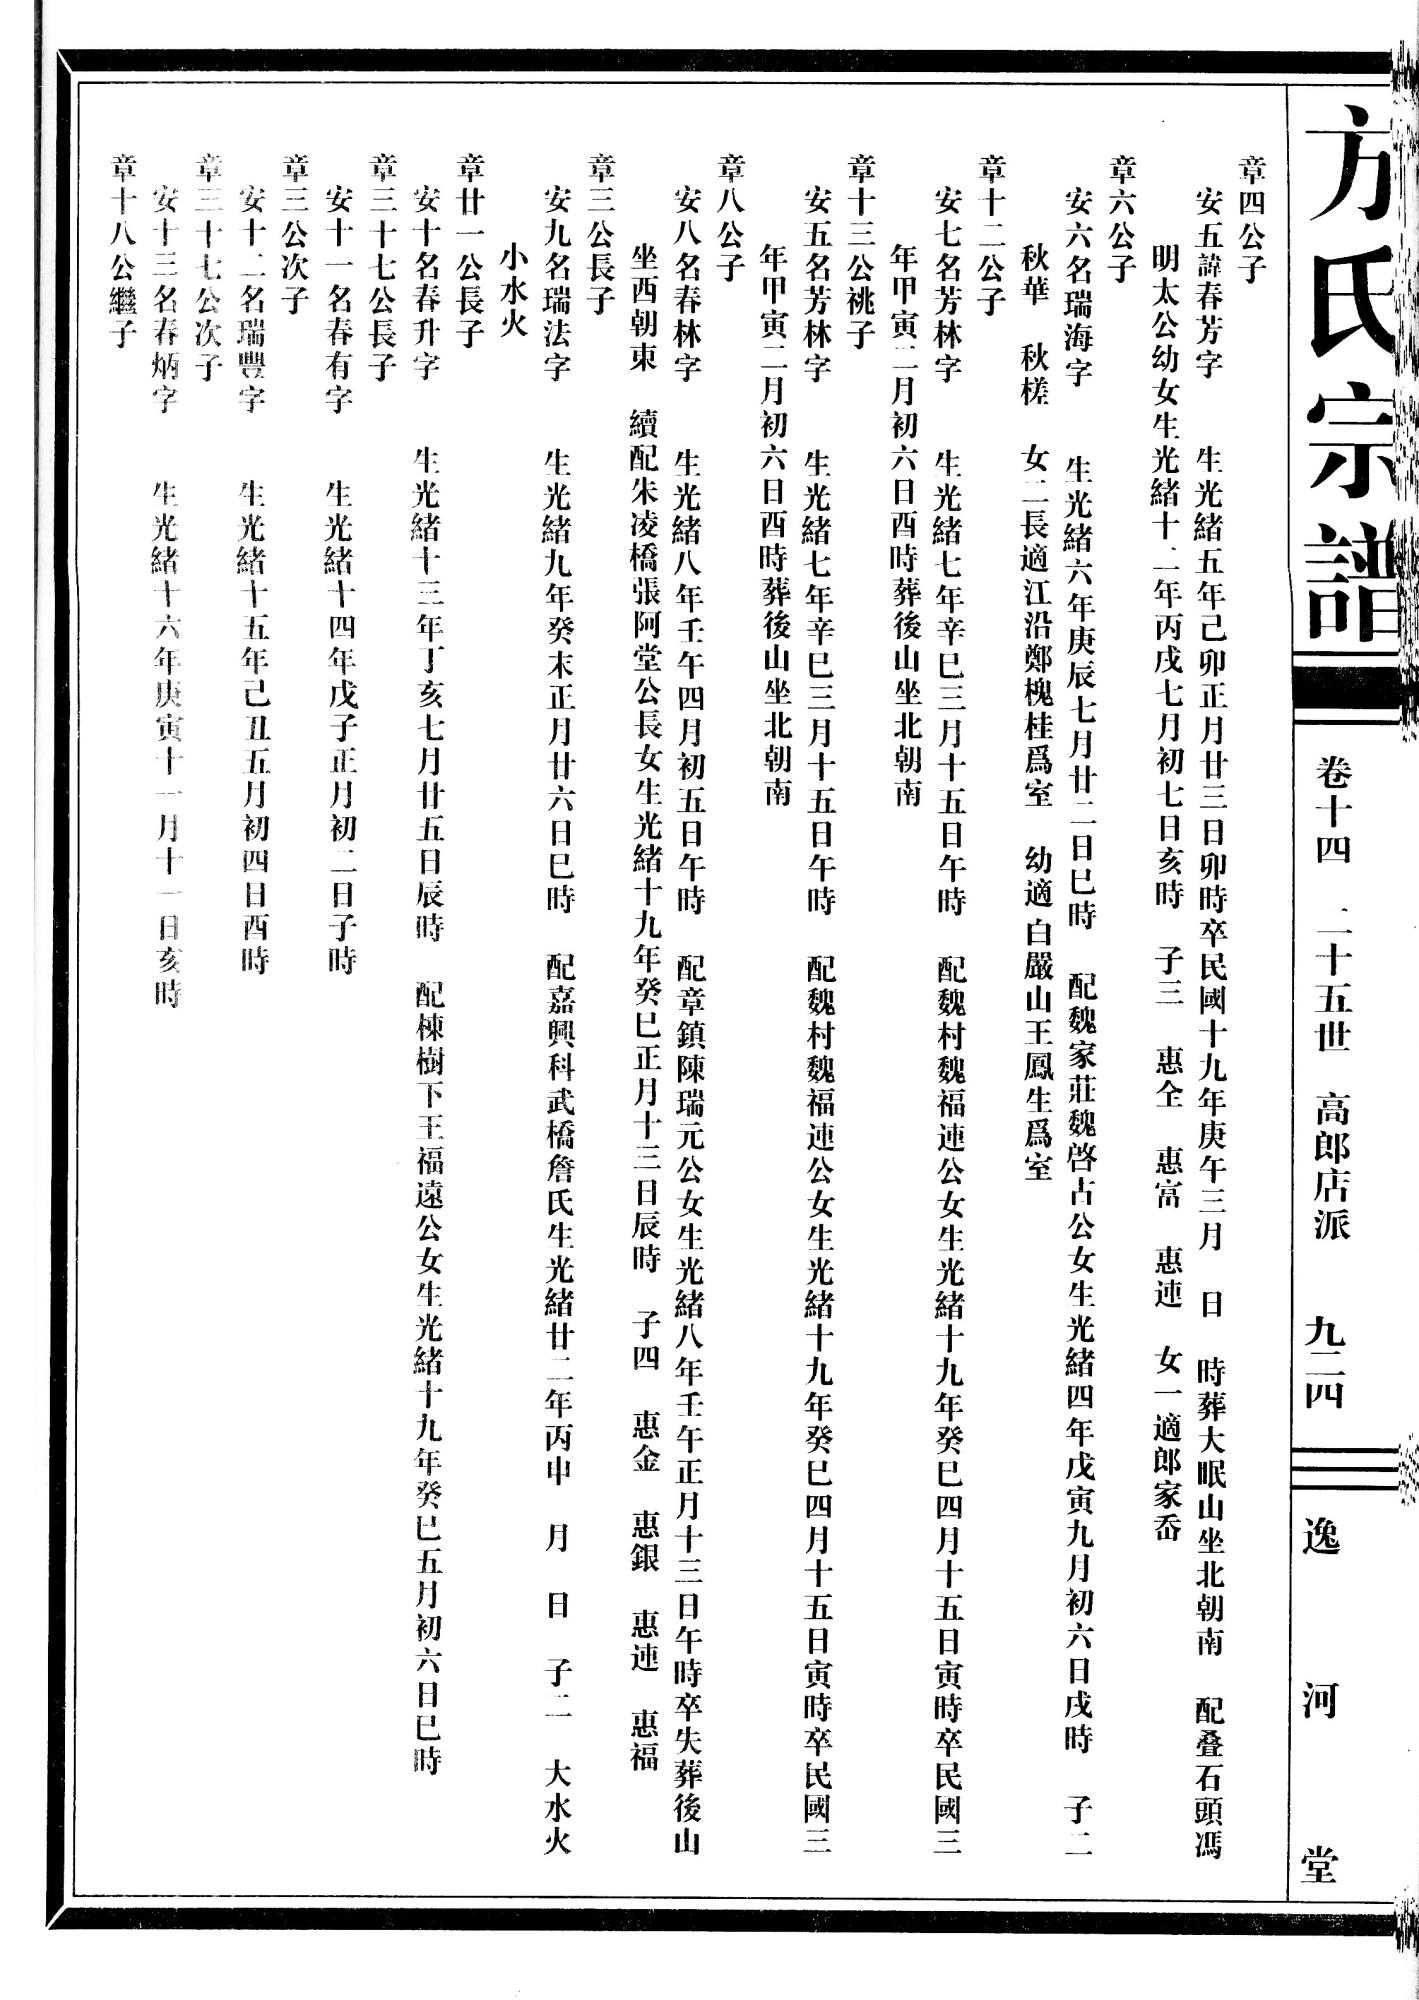 方氏宗譜
卷十四 二十五世 高郎店派 九二四
逸河堂
章四公子
安五諱春芳字 生光緒五年己卯正月廿三日卯時卒民國十九年庚午三月 日 時葬大眠山坐北朝南 配叠石頭馮
明太公幼女生光緒十二年丙戌七月初七日亥時 子三 惠全 惠富 惠連 女一適郎家岙
章六公子
安六名瑞海字 生光緒六年庚辰七月廿二日巳時 配魏家莊魏啓占公女生光緒四年戊寅九月初六日戌時 子二
秋華 秋槎 女二長適江沿鄭槐桂爲室 幼適白嚴山王鳳生爲室
章十二公子
安七名芳林字 生光緒七年辛巳三月十五日午時 配魏村魏福連公女生光緒十九年癸巳四月十五日寅時卒民國三
年甲寅二月初六日酉時葬後山坐北朝南
章十三公祧子
安五名芳林字 生光緒七年辛巳三月十五日午時 配魏村魏福連公女生光緒十九年癸巳四月十五日寅時卒民國三
年甲寅二月初六日酉時葬後山坐北朝南
章八公子
安八名春林字 生光緒八年壬午四月初五日午時 配章鎮陳瑞元公女生光緒八年壬午正月十三日午時卒失葬後山
坐西朝東 續配朱凌橋張阿堂公長女生光緒十九年癸巳正月十三日辰時 子四 惠金 惠銀 惠連 惠福
章三公長子
安九名瑞法字 生光緒九年癸未正月廿六日巳時 配嘉興科武橋詹氏生光緒廿二年丙申 月 日 子二 大水火
小水火
章廿一公長子
安十名春升字 生光緒十三年丁亥七月廿五日辰時 配棟樹下王福遠公女生光緒十九年癸巳五月初六日巳時
章三十七公長子
安十一名春有字 生光緒十四年戊子正月初二日子時
章三公次子
安十二名瑞豐字 生光緒十五年己丑五月初四日酉時
章三十七公次子
安十三名春炳字 生光緒十六年庚寅十一月十一日亥時
章十八公繼子